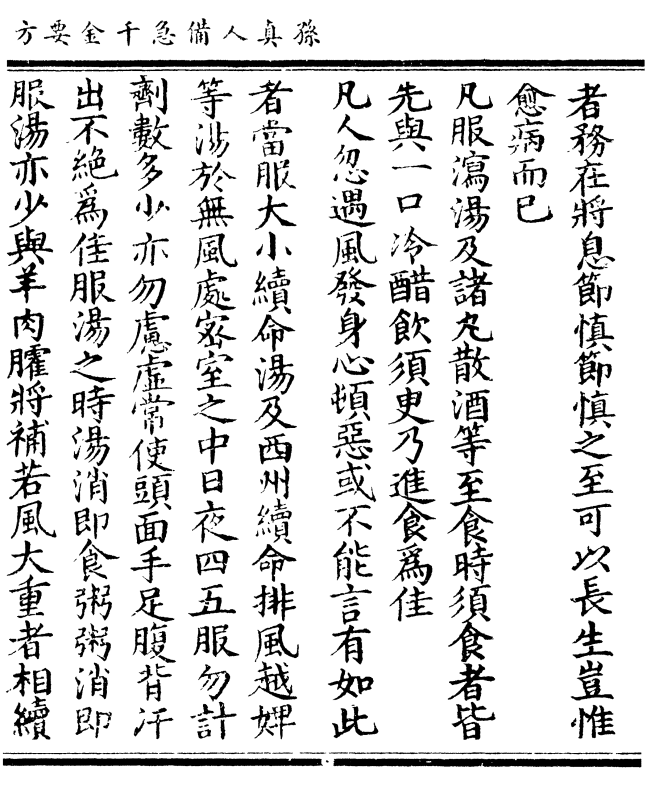 孫真人備急千金要方
者務在將息節慎節慎之至可以長生豈惟
愈病而已
凡服瀉湯及諸丸散酒等至食時須食者皆
先與一口冷醋飲須臾乃進食為佳
凡人忽遇風發身心頓惡或不能言有如此
者當服大小續命湯及西州續命排風越婢
等湯於無風處密室之中日夜四五服勿計
劑數多少亦勿慮虛常使頭面手足腹背汗
出不絕為佳服湯之時湯消即食粥粥消即
服湯亦少與羊肉臛將補若風大重者相續